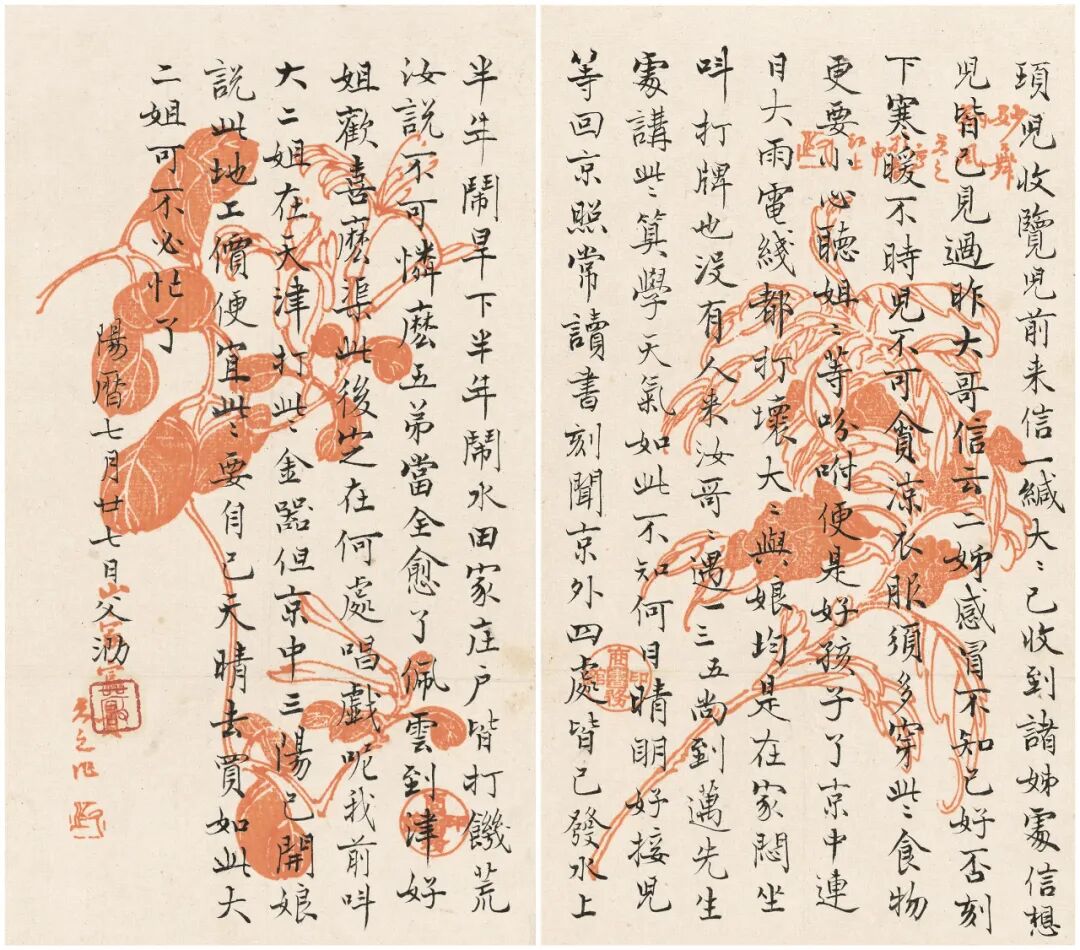 頊兒收覽兒前来信一緘大〻已收到諸姊處信想
兒皆已見過昨大哥信云二姊感冒不知已好否刻
下寒暖不時兒不可貪涼衣服須多穿些〻食物
更要小心聽姐〻等吩咐便是好孩子了京中連
日大雨電綫都打壞大〻與娘均是在家悶坐
呌打牌也没有人来汝哥〻遇一三五尚到邁先生
處講些〻算學天氣如此不知何日晴明好接兒
等回京照常讀書刻聞京外四處皆已發水上
半年鬧旱下半年鬧水田家庄户皆打饑荒
汝説可不可憐麽五弟當全愈了佩雲到津好
姐歡喜麽渠此後出在何處唱戲呢我前呌
大二姐在天津打些〻金器但京中三陽已開娘
説此地工價便宜些〻要自己天晴去買如此大
二姐可不必忙了
陽曆七月廿七日父泐